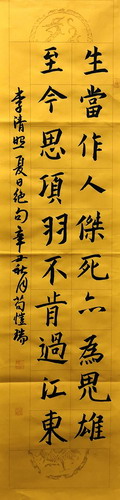 生當作人傑死亦為鬼雄
至今思項羽不肯過江東
李清照夏日绝句辛丑秋月苟愷瑞